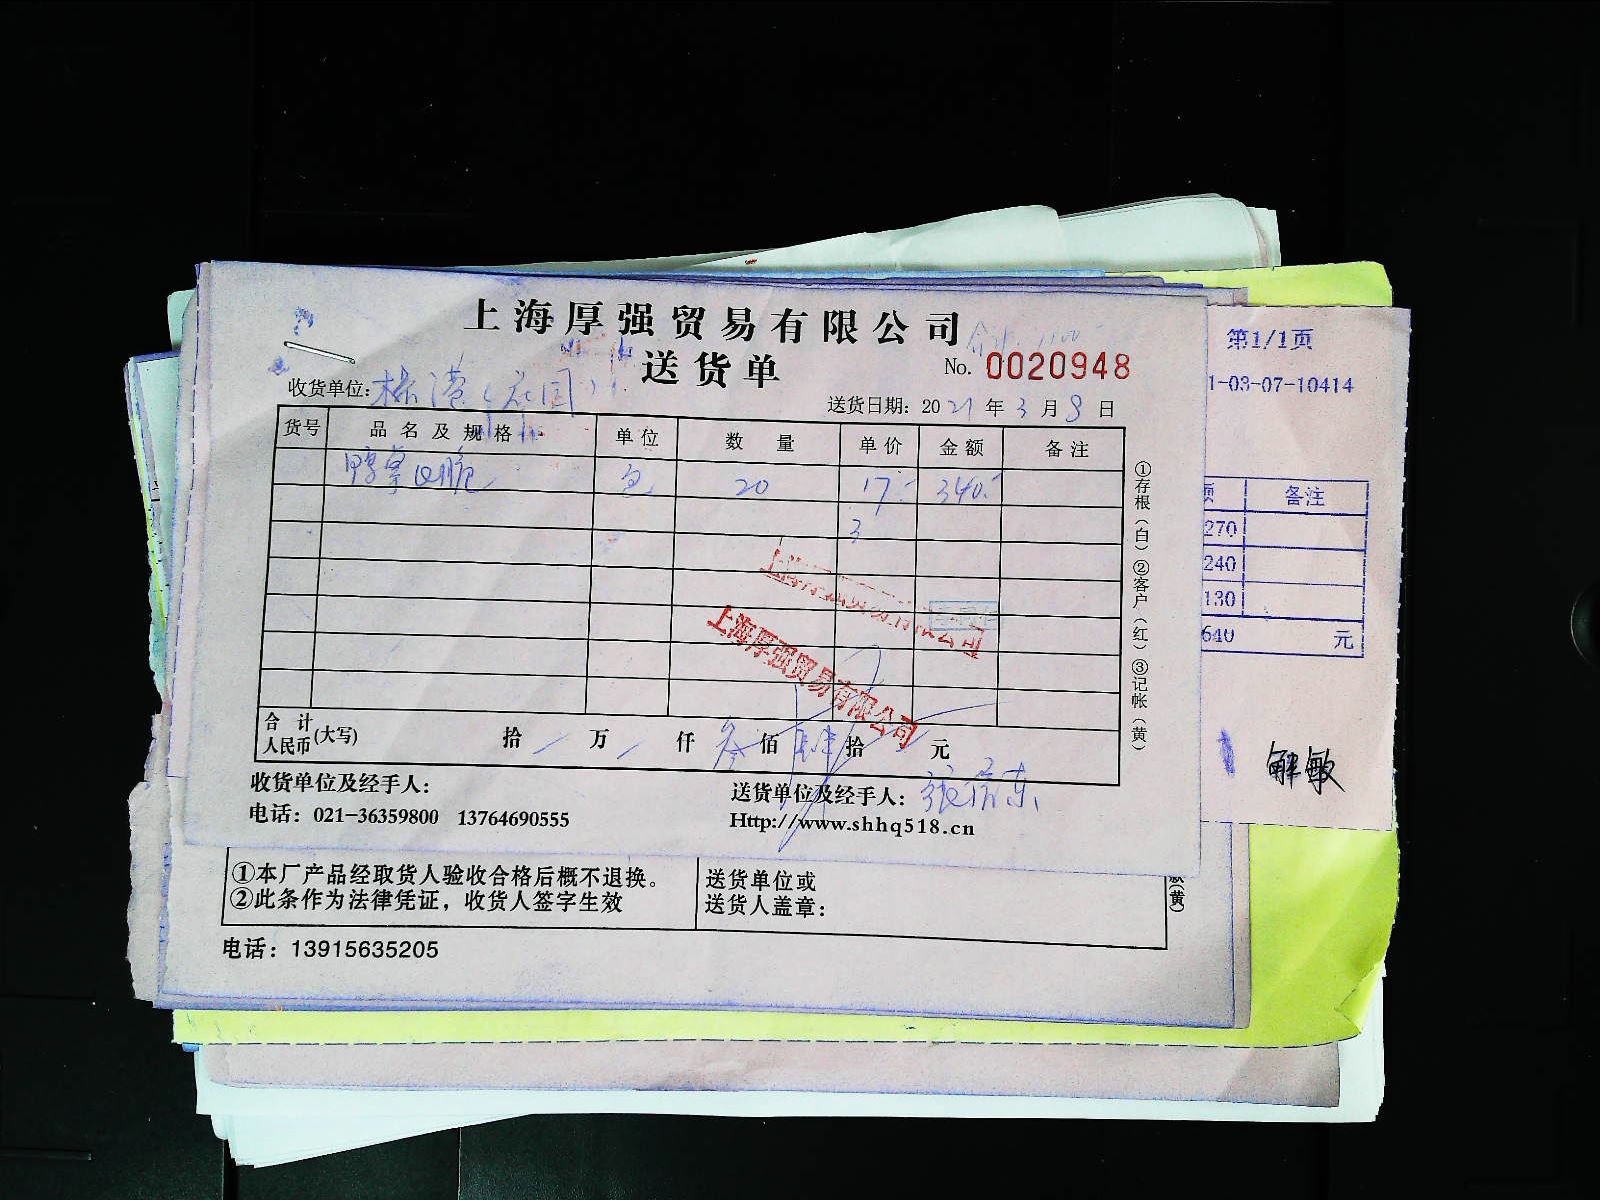 上海厚强贸易有限公司
送货单
No. 0020948
收货单位:
送货日期: 2021 年 3 月 9 日
货号 品名及规格 单位 数量 单价 金额 备注
鸭掌 包 20 17.- 340.-
3
上海厚强贸易有限公司
上海厚强贸易有限公司
合计人民币(大写) 拾 万 仟 叁 佰 肆 拾 元
收货单位及经手人:
送货单位及经手人:
电话: 021-36359800 13764690555
Http://www.shhq518.cn
①存根(白)②客户(红)③记帐(黄)
①本厂产品经取货人验收合格后概不退换。
②此条作为法律凭证,收货人签字生效
送货单位或
送货人盖章:
款(黄)
电话: 13915635205
第1/1页
1-03-07-10414
备注
270
240
130
640 元
解敏